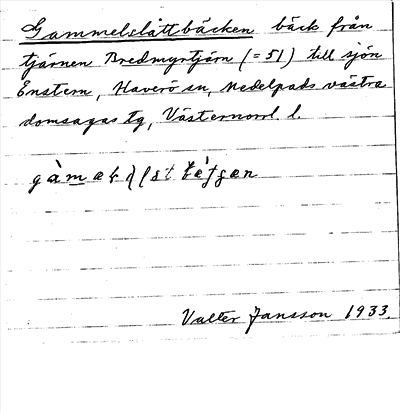 Gammelslåttbäcken bäck från
tjärnen Bredmyrtjärn (= 51) till sjön
Enstern, Haverö sn, Medelpads västra
domsagas tg, Västernorrl l.
Valter Jansson 1933.